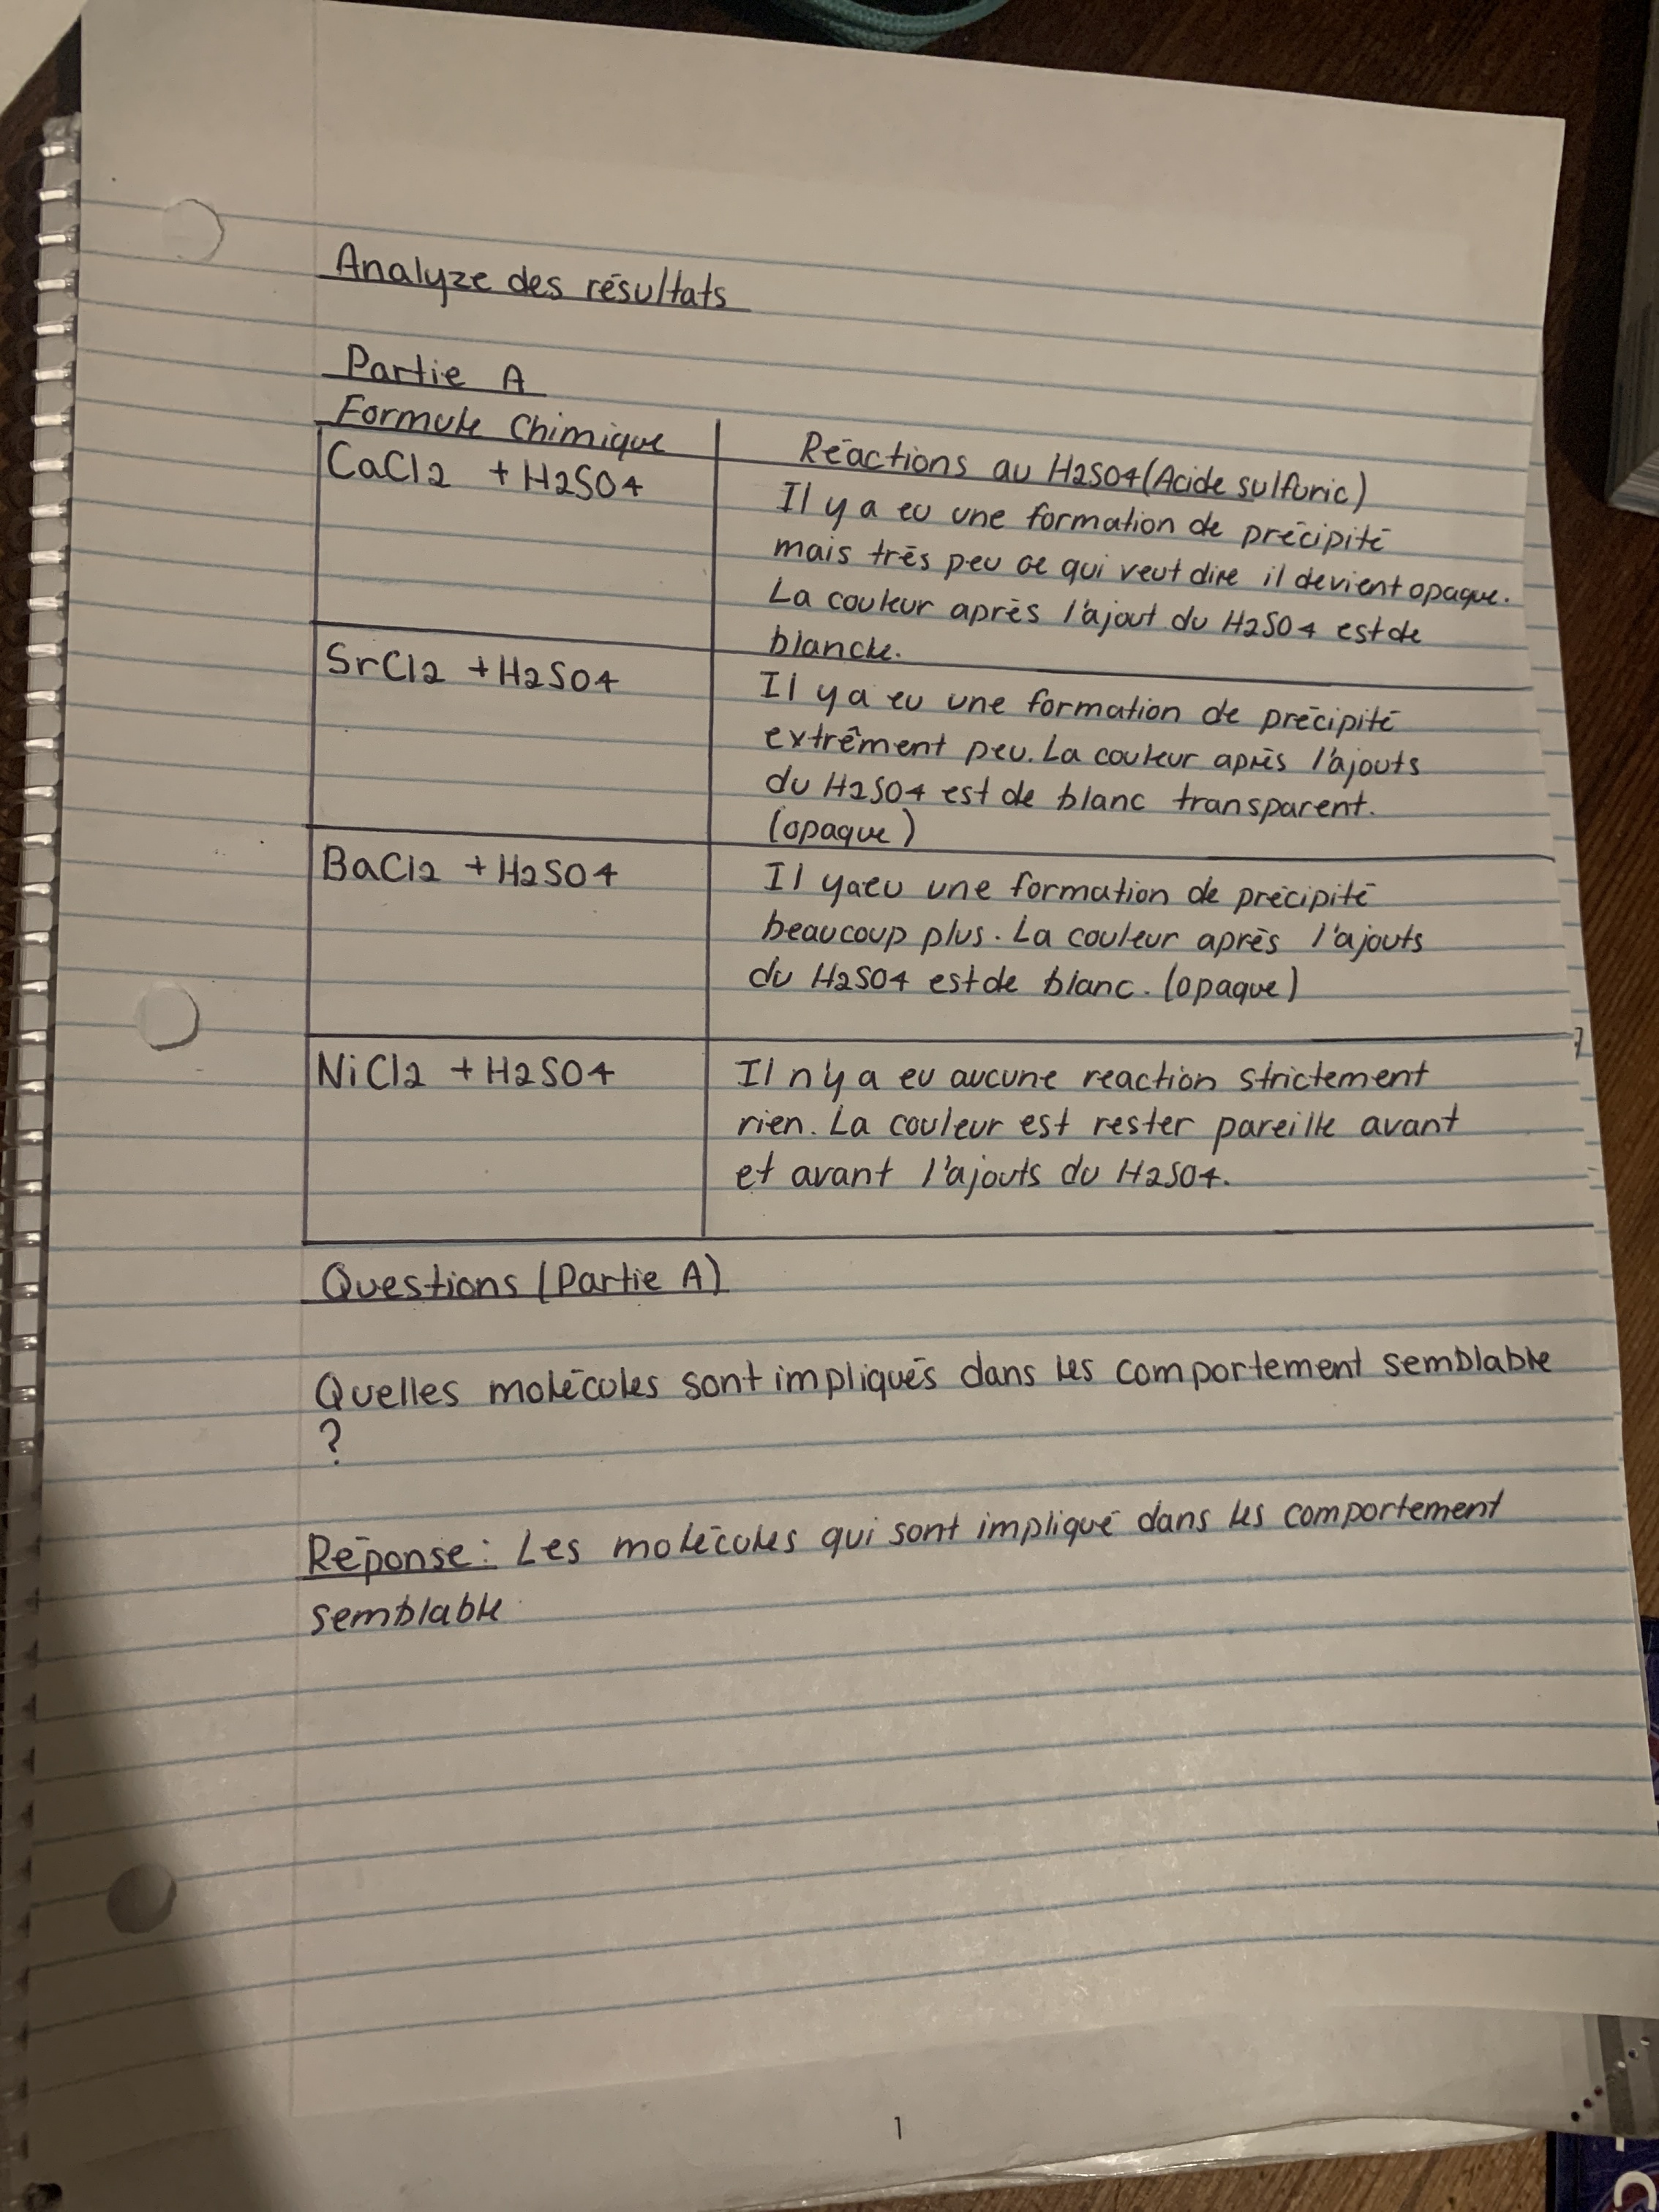 Analyze des résultats
Partie A
Formule Chimique
Réactions au H2SO4 (Acide sulfuric)
CaCl2 + H2SO4
Il y a eu une formation de précipité
mais très peu ce qui veut dire il devient opaque.
La couleur après l'ajout du H2SO4 est de
blanche.
SrCl2 + H2SO4
Il y a eu une formation de précipité
extrêment peu. La couleur après l'ajouts
du H2SO4 est de blanc transparent.
(opaque)
BaCl2 + H2SO4
Il y a eu une formation de précipité
beaucoup plus. La couleur après l'ajouts
du H2SO4 est de blanc. (opaque)
NiCl2 + H2SO4
Il n'y a eu aucune reaction strictement
rien. La couleur est rester pareille avant
et avant l'ajouts du H2SO4.
Questions (Partie A)
Quelles molécules sont impliqués dans les comportement semblable
?
Réponse: Les molécules qui sont impliqué dans les comportement
semblable
1